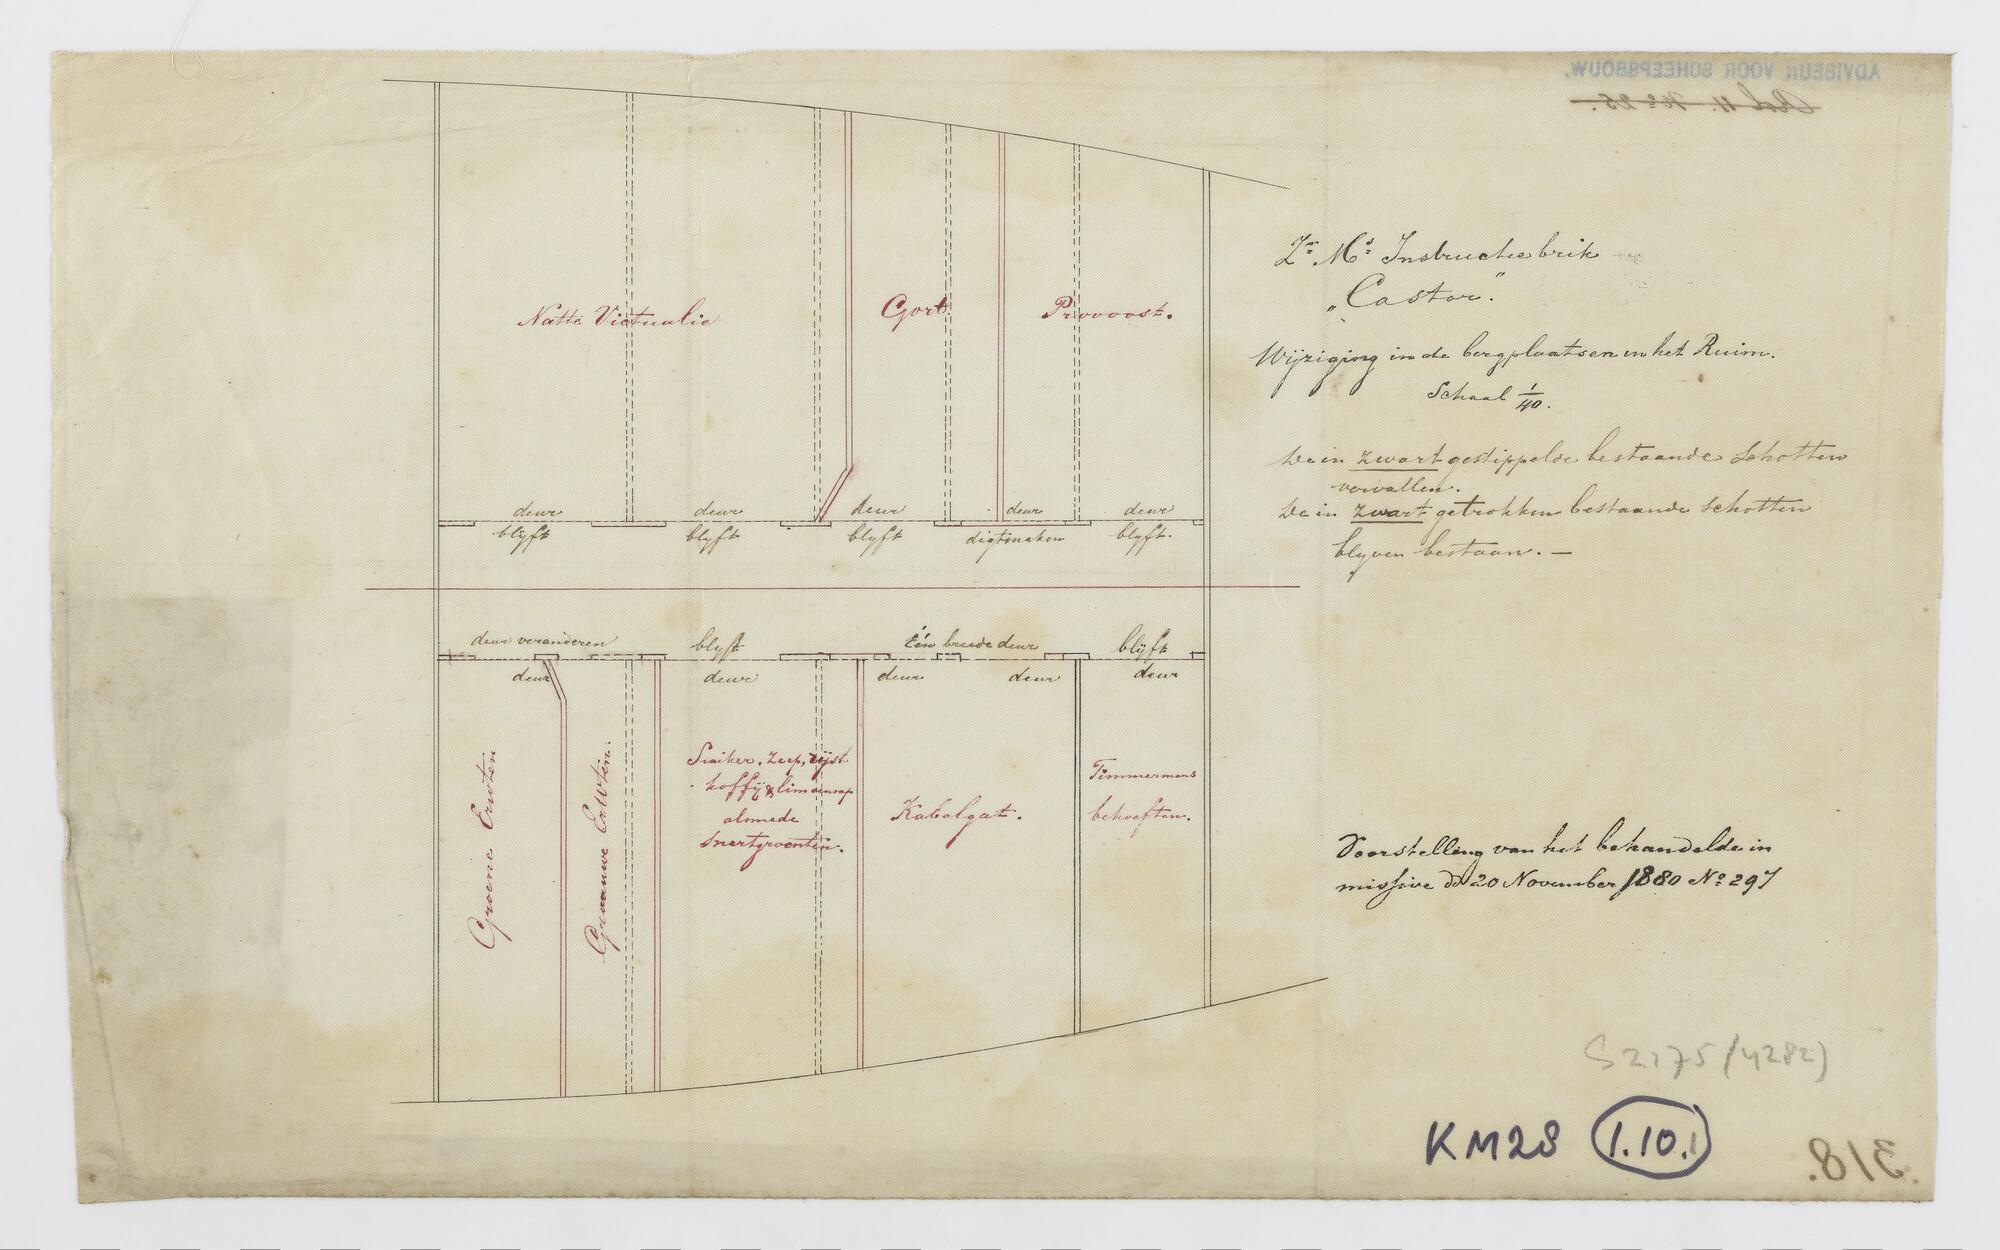 ADVISEUR VOOR SCHEEPSBOUW.
Zr. Ms. Instructiebrik
„Castor".
Wijziging in de bergplaatsen in het Ruim.
Schaal 1/40.
De in zwart gestippelde bestaande schotten
vervallen.
De in zwart getrokken bestaande schotten
blyven bestaan. —
Natte Victualie
Gort
Provoost.
deur
blyft
deur
blyft
deur
blyft
deur
digtmaken
deur
blyft.
deur veranderen
deur
blyft
deur
Één breede deur
deur
deur
blijft
deur
Groene Erwten
Graauwe Erwten.
Suiker, Zeep, rijst
koffij & limoensap
almede
snertgroenten.
Kabelgat.
Timmermans
behoeften.
Voorstelling van het behandelde in
missive dd 20 November 1880 No 297
S2175 (4282)
KM28 1.10.1
318.